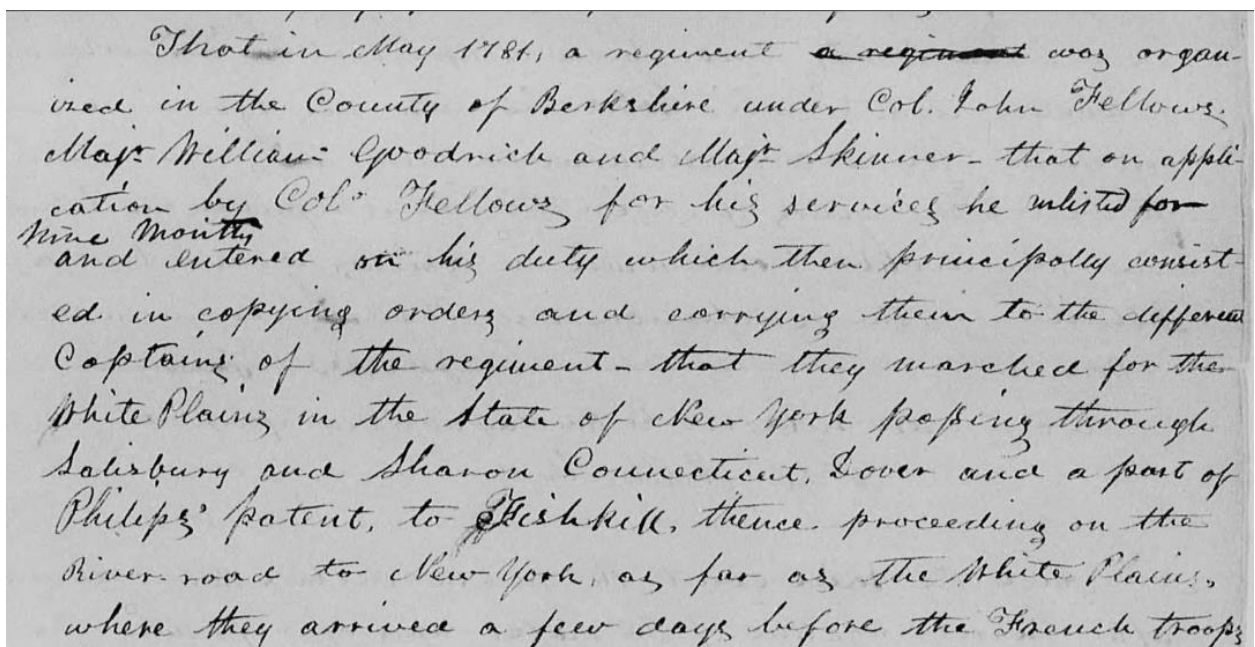 That in May 1781, a regiment a regiment was organ-
ized in the County of Berkshire under Col. John Fellows.
Majr William Goodrich and Majr Skinner - that on appli-
cation by Colo Fellows for his services he enlisted for
Nine Months
and entered on his duty which then principally consist-
ed in copying orders and carrying them to the different
Captains of the regiment - that they marched for the
White Plains in the State of New York passing through
Salisbury and Sharon Connecticut, Dover and a part of
Philips' patent, to Fishkill, thence proceeding on the
River road to New York, as far as the White Plains,
where they arrived a few days before the French troops